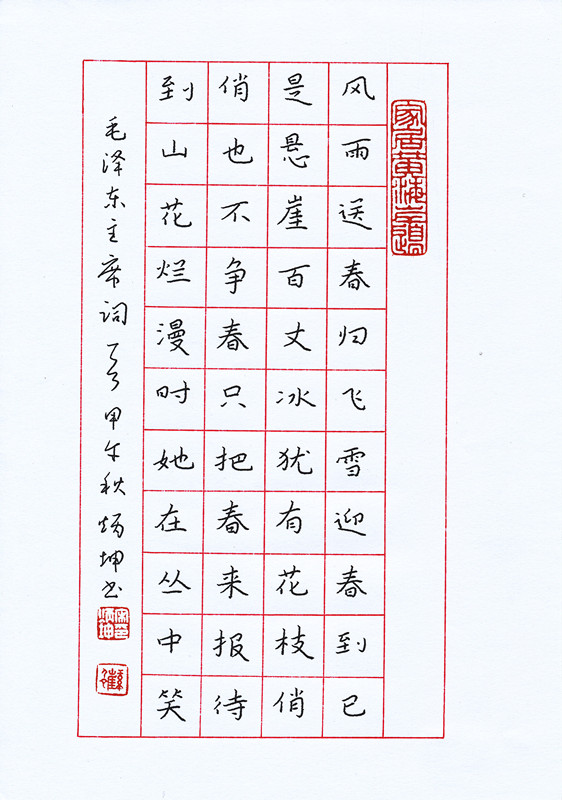 家居黄海
风雨送春归飞雪迎春到已
是悬崖百丈冰犹有花枝俏
俏也不争春只把春来报待
到山花烂漫时她在丛中笑
毛泽东主席词一首甲午秋坤书